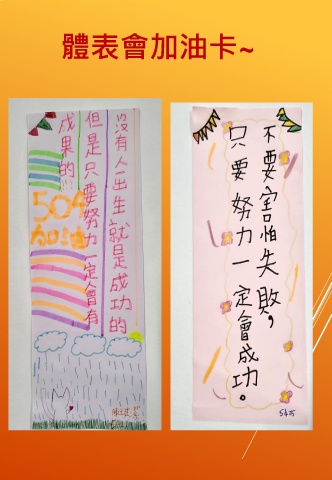 體表會加油卡~
沒有人一出生就是成功的
但是只要努力一定會有
成果的!!!
509
加油
不要害怕失敗，
只要努力一定會成功。